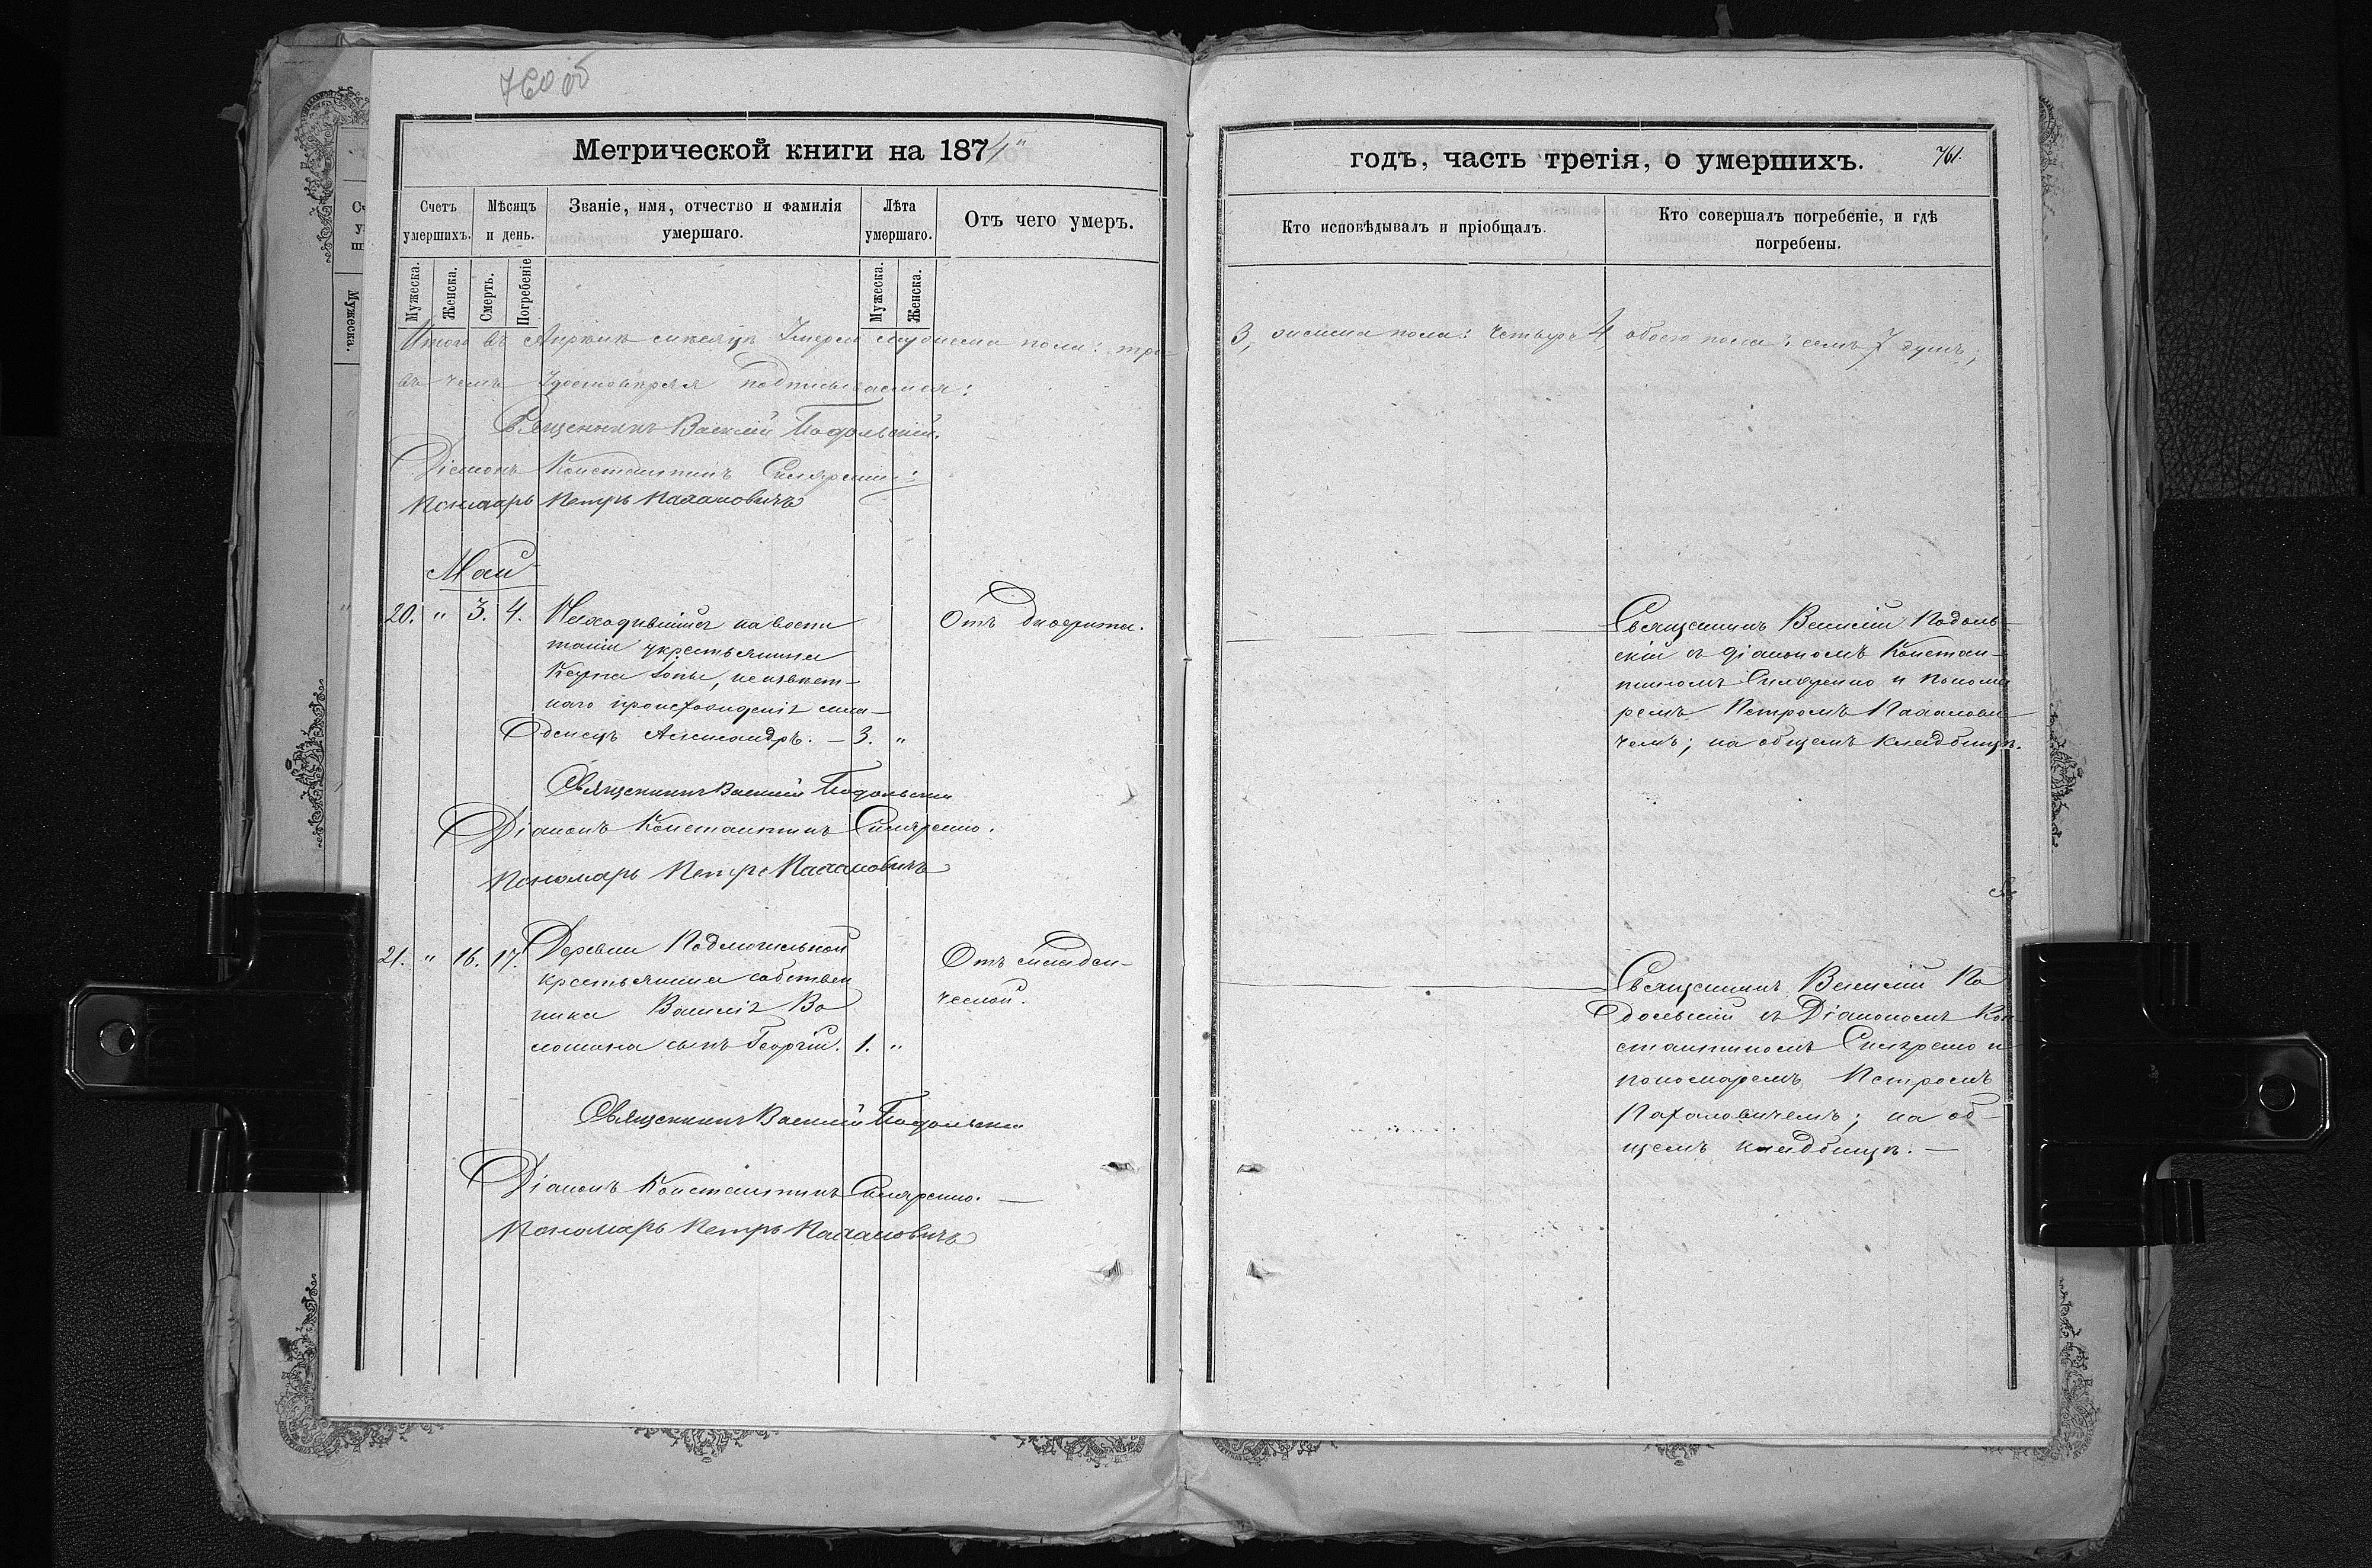 760 об
Метрической книги на 1874"
Счетъ умершихъ.
Мѣсяцъ и день.
Званіе, имя, отчество и фамилія умершаго.
Лѣта умершаго.
Отъ чего умеръ.
Мужеска.
Женска.
Смерть.
Погребеніе
Мужеска.
Женска.
Итого въ Апрѣлѣ мѣсяцѣ Умерло мужеска пола: три
въ чемъ Удостовѣряя подписываемся:
Священникъ Василій Подольскій.
Діаконъ Константинъ
Пономарь Петръ
Май
20. " 3. 4. Находившійся на воспи
таніи у крестьянина
неизвѣст-
наго происхожденія мла-
денецъ Александръ. — 3. "
Отъ
Священникъ Василій Подольскій
Діаконъ Константинъ
Пономарь Петръ
21. " 16. 17. Деревни Подмогильной
крестьянина собствен
ника Василія Во
сынъ Георгій. 1. "
Отъ младен-
ческой.
Священникъ Василій Подольскій
Діаконъ Константинъ
Пономарь Петръ
годъ, часть третія, о умершихъ.
761.
Кто исповѣдывалъ и пріобщалъ.
Кто совершалъ погребеніе, и гдѣ погребены.
3, женска пола: четыре 4 обоего пола: семь 7 душъ,
Священникъ Василій Подоль-
скій съ діакономъ Констан-
тиномъ и понома
ремъ Петромъ
чемъ; на общемъ кладбищѣ.
Священникъ Василій По
дольскій съ Діакономъ Кон
стантиномъ и
пономаремъ Петромъ
на об-
щемъ кладбищѣ. —